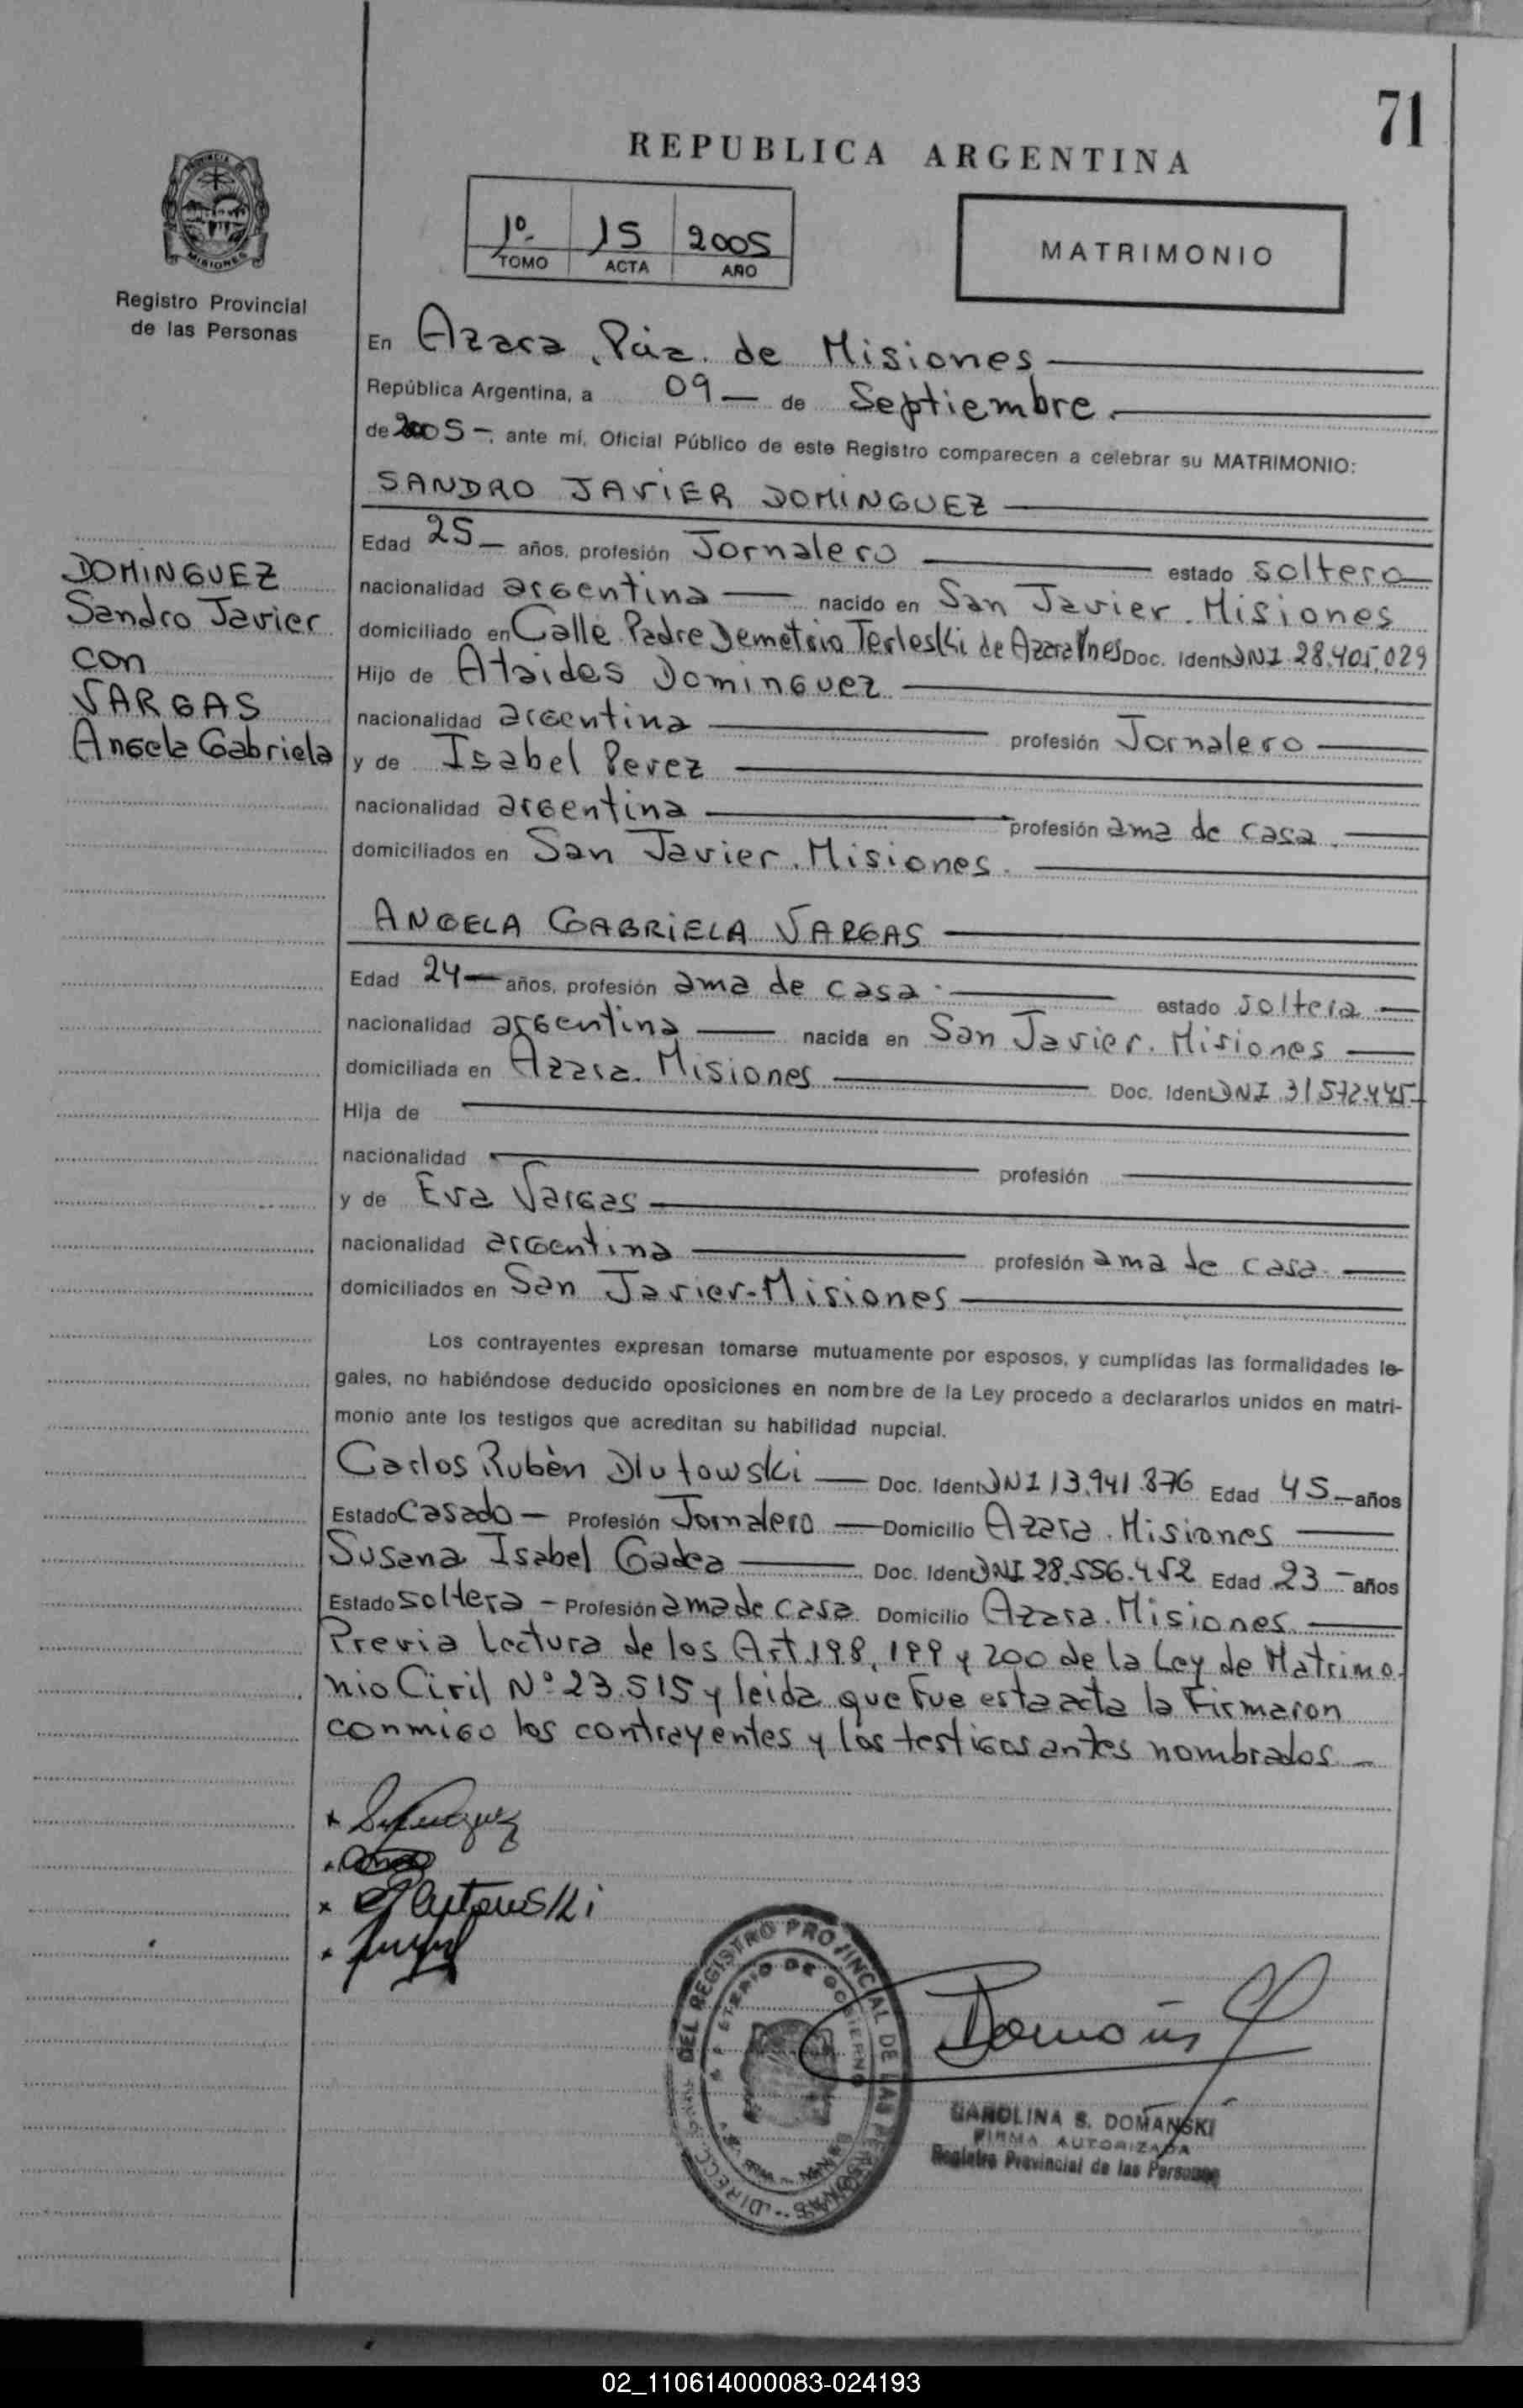 71
REPUBLICA ARGENTINA
PROVINCIA DE
MISIONES
Registro Provincial
de las Personas
1º- 15 2005
TOMO ACTA AÑO
MATRIMONIO
En Azara, Pcia. de Misiones
República Argentina, a 09 — de Septiembre.
de 2005 -, ante mí, Oficial Público de este Registro comparecen a celebrar su MATRIMONIO:
SANDRO JAVIER DOMINGUEZ
Edad 25 — años, profesión Jornalero estado soltero
nacionalidad argentina nacido en San Javier. Misiones
domiciliado en Calle Padre Demetrio Terleski de Azara Mnes Doc. Ident DNI 28.405.029
Hijo de Ataides Dominguez
nacionalidad argentina profesión Jornalero
y de Isabel Perez
nacionalidad argentina profesión ama de casa.
domiciliados en San Javier. Misiones.
DOMINGUEZ
Sandro Javier
con
VARGAS
Angela Gabriela
ANGELA GABRIELA VARGAS
Edad 24 — años, profesión ama de casa. estado soltera
nacionalidad argentina nacida en San Javier. Misiones
domiciliada en Azara. Misiones Doc. Ident DNI 31.572.445-
Hija de
nacionalidad profesión
y de Eva Vargas
nacionalidad argentina profesión ama de casa
domiciliados en San Javier-Misiones
Los contrayentes expresan tomarse mutuamente por esposos, y cumplidas las formalidades le-
gales, no habiéndose deducido oposiciones en nombre de la Ley procedo a declararlos unidos en matri-
monio ante los testigos que acreditan su habilidad nupcial.
Carlos Rubèn Dlutowski — Doc. Ident DNI 13.941.876 Edad 45 — años
Estado Casado — Profesión Jornalero — Domicilio Azara. Misiones
Susana Isabel Gadea Doc. Ident DNI 28.556.452 Edad 23 — años
Estado soltera - Profesión ama de casa Domicilio Azara. Misiones
Previa lectura de los Art. 198, 199 y 200 de la Ley de Matrimo-
nio Civil Nº 23.515 y leida que fue esta acta la firmaron
conmigo los contrayentes y los testigos antes nombrados —
Dlutowski
DEL REGISTRO PROVINCIAL DE LAS PERSONAS
DE GOBIERNO
CAROLINA S. DOMANSKI
FIRMA AUTORIZADA
Registro Provincial de las Personas
02_110614000083-024193